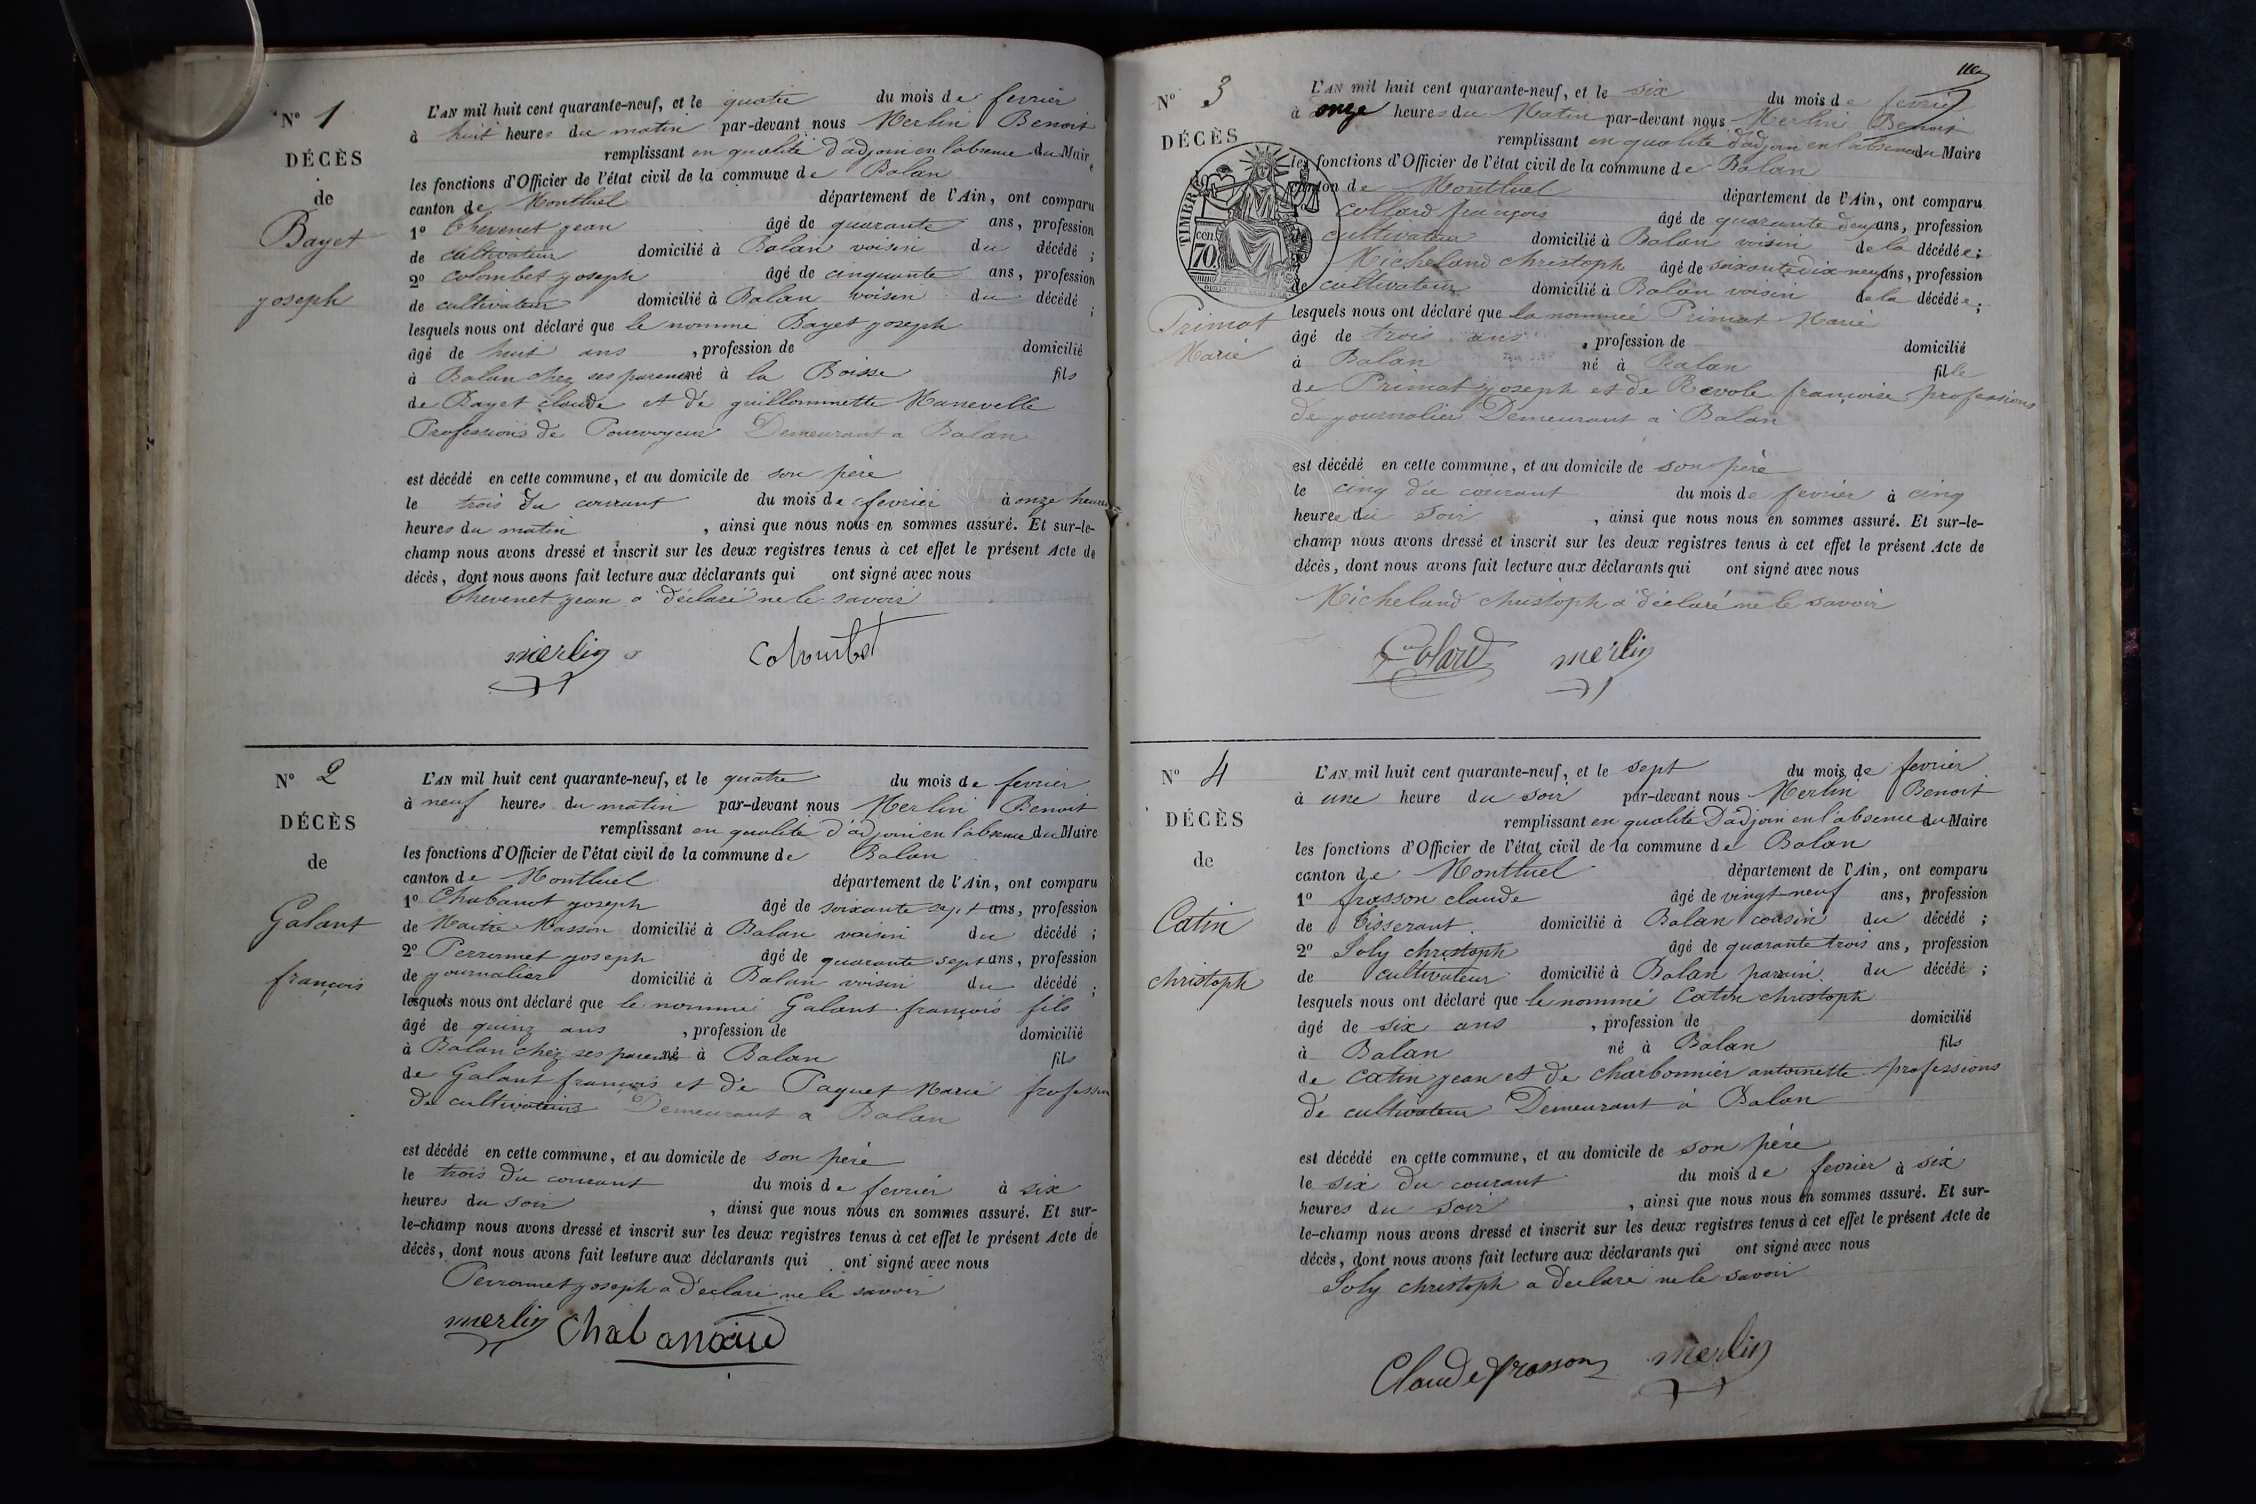 N° 1
DÉCÈS
de
Bayet
joseph
L'AN mil huit cent quarante-neuf, et le quatre du mois de fevrier
à huit heures du matin par-devant nous Merlin Benoit
remplissant en qualité d'adjoin en l'absence du Maire
les fonctions d'Officier de l'état civil de la commune de Balan
canton de Montluel département de l'Ain, ont comparu
1° Chevenet jean âgé de quarante ans, profession
de cultivateur domicilié à Balan voisin du décédé ;
2° Colombet joseph âgé de cinquante ans, profession
de cultivateur domicilié à Balan voisin du décédé ;
lesquels nous ont déclaré que le nommé Bayet joseph
âgé de huit ans , profession de domicilié
à Balan chez ses parens né à la Boisse fils
de Bayet claude et de guillommette Manevelle
Professions de Pourvoyeur Demeurant a Balan
est décédé en cette commune, et au domicile de son père
le trois du courant du mois de fevrier à onze heures
heures du matin , ainsi que nous nous en sommes assuré. Et sur-le-
champ nous avons dressé et inscrit sur les deux registres tenus à cet effet le présent Acte de
décès, dont nous avons fait lecture aux déclarants qui ont signé avec nous
Chevenet jean a déclaré ne le savoir
merlin colombet
N° 2
DÉCÈS
de
Galant
françois
L'AN mil huit cent quarante-neuf, et le quatre du mois de fevrier
à neuf heures du matin par-devant nous Merlin Benoit
remplissant en qualité d'adjoin en l'absence du Maire
les fonctions d'Officier de l'état civil de la commune de Balan
canton de Montluel département de l'Ain, ont comparu
1° Chabanot joseph âgé de soixante sept ans, profession
de Maitre Masson domicilié à Balan voisin du décédé ;
2° Perronnet joseph âgé de quarante sept ans, profession
de journalier domicilié à Balan voisin du décédé ;
lesquels nous ont déclaré que le nommé Galant françois fils
âgé de quinz ans , profession de domicilié
à Balan chez ses parens né à Balan fils
de Galant françois et de Paquet Marie profession
de cultivateurs Demeurant a Balan
est décédé en cette commune, et au domicile de son père
le trois du courant du mois de fevrier à six
heures du soir , ainsi que nous nous en sommes assuré. Et sur-
le-champ nous avons dressé et inscrit sur les deux registres tenus à cet effet le présent Acte de
décès, dont nous avons fait lecture aux déclarants qui ont signé avec nous
Perronnet joseph a déclaré ne le savoir
merlin
N° 3
DÉCÈS
TIMBRE
cen.
70
Primat
Marie
L'AN mil huit cent quarante-neuf, et le six du mois de fevrier
à onze heures du Matin par-devant nous Merlin Benoit
remplissant en qualité d'adjoin en l'absence du Maire
les fonctions d'Officier de l'état civil de la commune de Balan
canton de Montluel département de l'Ain, ont comparu
Collard françois âgé de quarante deux ans, profession
de cultivateur domicilié à Balan voisin de la décédée ;
Micheland christoph âgé de soixante dix neuf ans, profession
de cultivateur domicilié à Balan voisin de la décédée ;
lesquels nous ont déclaré que la nommée Primat Marie
âgé de trois ans , profession de domicilié
à Balan né à Balan fille
de Primat joseph et de Revole françoise professions
de journalier Demeurant a Balan
est décédé en cette commune, et au domicile de son père
le cinq du courant du mois de fevrier à cinq
heures du soir , ainsi que nous nous en sommes assuré. Et sur-le-
champ nous avons dressé et inscrit sur les deux registres tenus à cet effet le présent Acte de
décès, dont nous avons fait lecture aux déclarants qui ont signé avec nous
Micheland christoph a déclaré ne le savoir
Colard merlin
N° 4
DÉCÈS
de
Catin
christoph
L'AN mil huit cent quarante-neuf, et le sept du mois de fevrier
à une heure du soir par-devant nous Merlin Benoit
remplissant en qualité D'adjoin en l'absence du Maire
les fonctions d'Officier de l'état civil de la commune de Balan
canton de Montluel département de l'Ain, ont comparu
1° frasson claude âgé de vingt neuf ans, profession
de Tisserant domicilié à Balan cousin du décédé ;
2° Joly christoph âgé de quarante trois ans, profession
de cultivateur domicilié à Balan parain du décédé ;
lesquels nous ont déclaré que le nommé Catin christoph
âgé de six ans , profession de domicilié
à Balan né à Balan fils
de Catin jean et de charbonnier antoinette professions
de cultivateur Demeurant a Balan
est décédé en cette commune, et au domicile de son père
le six du courant du mois de fevrier à six
heures du soir , ainsi que nous nous en sommes assuré. Et sur-
le-champ nous avons dressé et inscrit sur les deux registres tenus à cet effet le présent Acte de
décès, dont nous avons fait lecture aux déclarants qui ont signé avec nous
Joly christoph a declaré ne le savoir
Claude frasson merlin